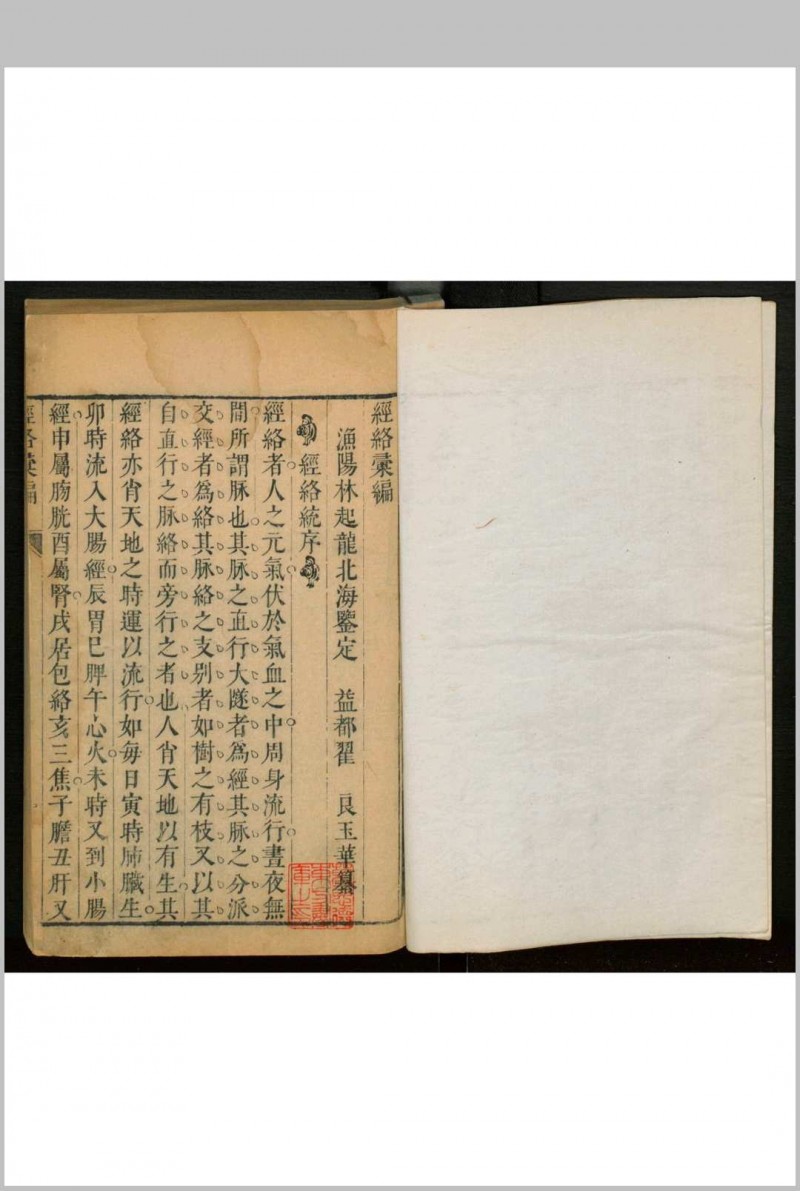 經絡彙編
漁陽林起龍北海鑒定　益都翟　良玉華纂
經絡統序
經絡者人之元氣伏於氣血之中周身流行晝夜無
間所謂脉也其脉之直行大隧者為經其脉之分派
交經者為絡其脉絡之支别者如樹之有枝又以其
自直行之脉絡而旁行之者也人肖天地以有生其
經絡亦肖天地之時運以流行如每日寅時肺臟生
卯時流入大腸經辰胃巳脾午心火未時又到小腸
經申屬膀胱酉屬腎戌居包絡亥三焦子膽丑肝又
經絡彙編